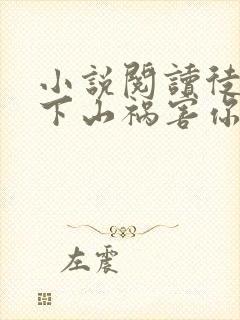 小說閱讀徒
下山禍害你
左震